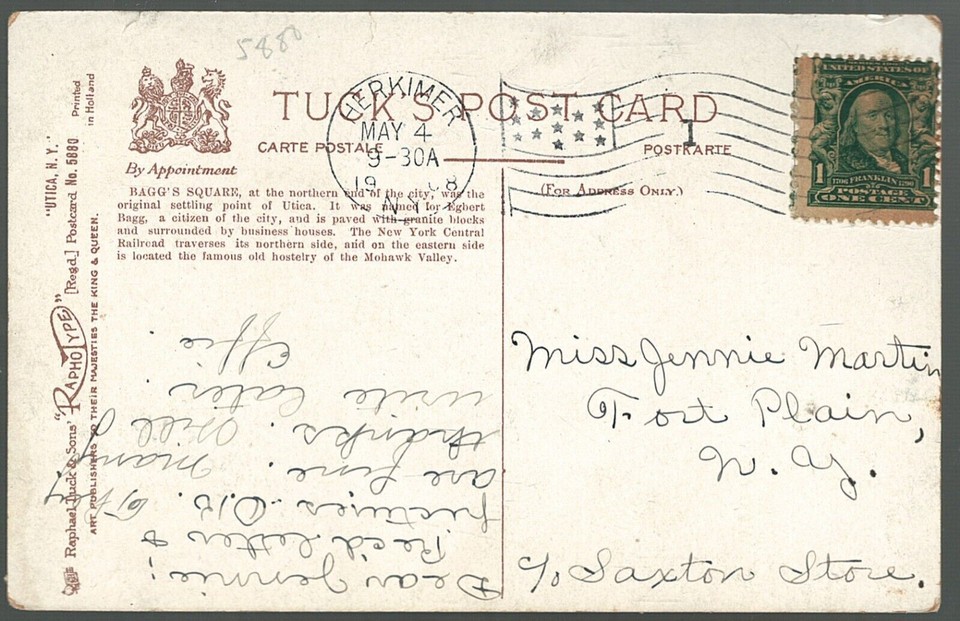 5880
TUCK'S POST CARD
CARTE POSTALE
POSTKARTE
(FOR ADDRESS ONLY.)
By Appointment
BAGG'S SQUARE, at the northern end of the city, was the
original settling point of Utica. It was named for Egbert
Bagg, a citizen of the city, and is paved with granite blocks
and surrounded by business houses. The New York Central
Railroad traverses its northern side, and on the eastern side
is located the famous old hostelry of the Mohawk Valley.
HERKIMER
MAY 4
9-30A
19 8
N.Y.
1
UNITED STATES OF
AMERICA
1706 FRANKLIN 1790
POSTAGE
1 1
ONE CENT
"UTICA, N.Y."
Printed
in Holland
Raphael Tuck & Sons' "RAPHOTYPE" [Regd.] Postcard No. 5880
ART PUBLISHERS TO THEIR MAJESTIES THE KING & QUEEN.
Dear Jennie;
Rec'd letter &
pictures O.K. They
are fine. Many
thanks. Will
write later
Effie.
Miss Jennie Martin
Fort Plain,
N. Y.
c/o Saxton Store.